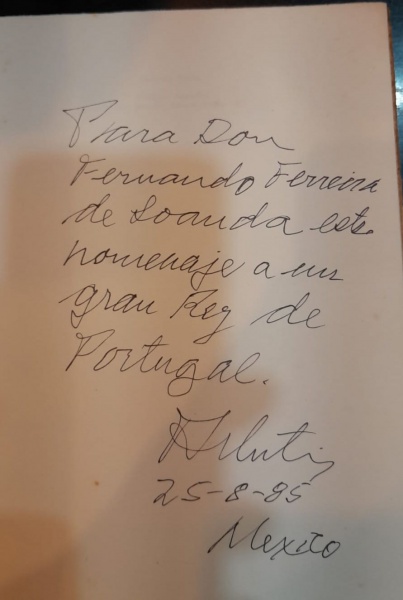 Para Don
Fernando Ferreira
de Loanda este
homenaje a un
gran Rey de
Portugal.
25-8-95
Mexico